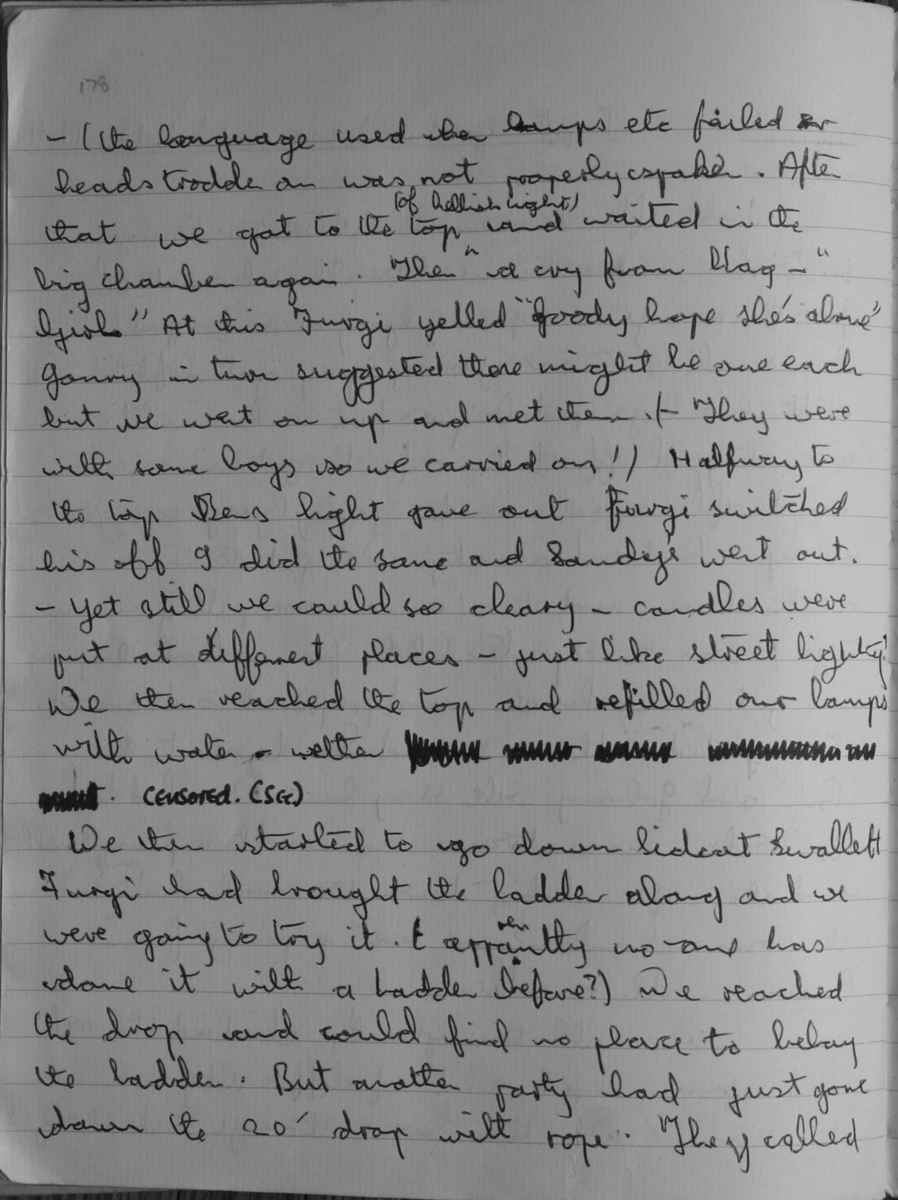 178
- (the language used when lamps etc failed or
heads trodden on was not properly spoken. After
(of hellish hight)
that we got to the top and waited in the
big chamber again. Then " a cry from Mag - "
Girls" At this Furgi yelled "Goody hope she's alone"
Ganny in turn suggested there might be one each
but we went on up and met them. (- They were
with some boys so we carried on!) Halfway to
the top Bens light gave out Furgi switched
his off I did the same and Sandys went out.
- Yet still we could see cleary - candles were
put at different places - just like street lights!
We then reached the top and refilled our lamps
with water -
CENSORED. (SG)
We then started to go down Sidcot Swallett
Furgi had brought the ladder along and we
were going to try it. (apparently no-one has
done it with a ladder before?) We reached
the drop and could find no place to belay
the ladder. But another party had just gone
down the 20' drop with rope. They called